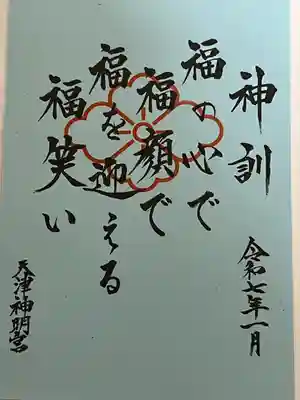 神訓
福の心で
福顔で
福を迎える
福笑い
令和七年一月
天津神明宮